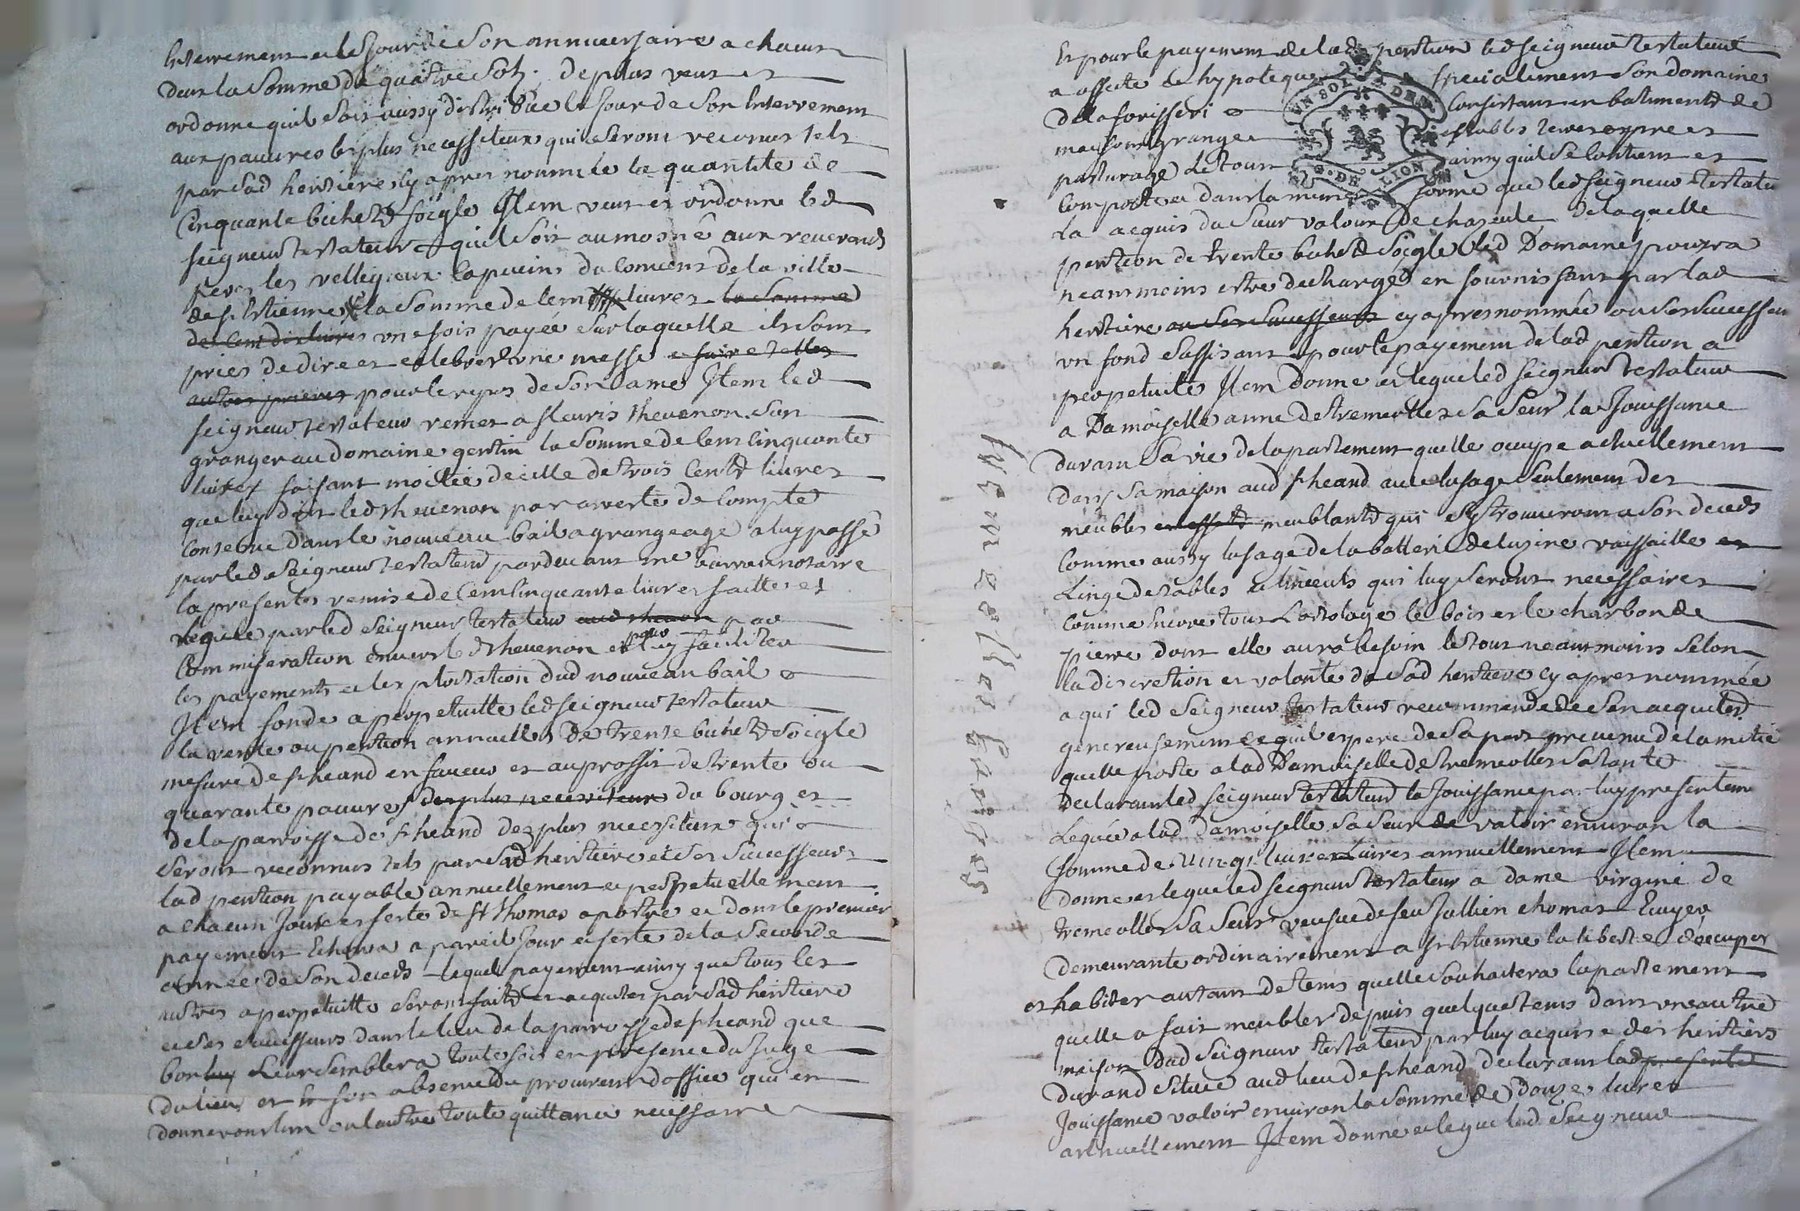 Enterrement et le jour de son annuersaire a chacun
deux la somme de quattre solz. de plus veut et
ordonne quil soit aussy distribué le jour de son enterrement
aux pauures les plus necessiteux qui seront reconus tels
par sad heritiere cy apres nommée la quantité de
Cinquante bichetz soigle Item veut et ordonne led
seigneur testateur quil soit aumosné aux reuerends
peres les relligieux Capucins du Conuent de la ville
de st Estienne la somme de Cent livres la somme
de Cent dix livres vne fois payée sur laquelle ils sont
priés de dire et celebrer vne messe et faire telles
autres prieres pour le repos de son ame Item led
seigneur testateur remet a fleuris theuenon son
granger au domaine gentin la somme de Cent cinquante
liures faisant moitié de celle de trois Centz liures
que luy doit led theuenon par arresté de Compte
Contenue dans le nouueau bail a grangeage a luy passé
par led seigneur testateur pardeuant me barrou notaire
la presente remise de Cent cinquante livres faitte et
leguée par led seigneur testateur aud theuenon par
Commiseration enuers led theuenon et pour luy faciliter
les payements et lexploitation dud nouueau bail
Item fonde a perpetuitté led seigneur testateur
la rente ou pention annuelle de trente bichetz soigle
mesure de st heand en faueur et au proffit de trente ou
quarante pauures des plus necessiteux du bourg et
de la parroisse de st heand des plus necessiteux qui
seront reconnus tels par sad heritiere et ses successeurs
lad pention payable annuellement et perpetuellement
a chacun jour et feste de st thomas apostre et dont le premier
payement Echerra a pareil jour et feste de la seconde
année de son deceds lequel payement ainsy que tous les
autres a perpetuitté seront faitz et acquités par sad heritiere
et ses successeurs dans le lieu de la parroisse de st heand que
bon luy leur semblera toutefois en presence du Juge
du lieu et en son absence du procureur doffice qui en
donneront lun ou lautre toute quittance necessaire
Et pour le payement de lad pention led seigneur testateur
a affecté et hypotequé specialement son domaine
de la forisseri Consistant en batiments de
maison grange estables terres prés et
pasturage le tout ainsy quil se Contient et
Comporte et dans la meme forme que led seigneur testateur
La acquis du sieur valour de chazeule de laquelle
pention de trente bichetz soigle led Domaine pourra
neantmoins estre dechargé en fournissant par lad
heritiere ou ses successeurs cy apres nommée ou ses successeurs
vn fond suffisant pour le payement de lad pention a
perpetuité Item donne et legue led seigneur testateur
a Damoiselle anne de tremeolles sa seur la Jouissance
durant sa vie de lapartement quelle ocupe actuellement
dans sa maison aud st heand auec lusage seulement des
meubles et effetz meublantz qui sy trouueront a son deceds
Comme aussy lusage de la batterie de cuisine vaisselle et
Linge de tables et linceuls qui luy seront necessaires
Comme encore tous Lortolage le bois et le charbon de
pierre dont elle aura besoin le tout neantmoins selon
la discretion et volonté de sad heritiere cy apres nommée
a qui led seigneur testateur recommende de sen acquiter
genereusement ce quil espere de sa part preuenu de lamitié
quelle porte a lad Damoiselle de tremeolles sa tante
Declarant led seigneur testateur la Jouissance par luy presentement
Leguée a lad Damoiselle sa seur de valoir enuiron la
somme de vingt livres annuellement Item
donne et legue led seigneur testateur a dame virginie de
tremeolles sa seur veufue de feu Jullien thomas Ecuyer
demeurante ordinairement a st Estienne la liberté doccuper
et habiter autant de tems quelle souhaitera lapartement
quelle a fait meubler depuis quelque tems dans vne autre
maison dud seigneur testateur par luy acquise des heritiers
durand située aud lieu de st heand declarant lad presente
Jouissance valoir enuiron la somme de douze livres
annuellement Item donne et legue led seigneur